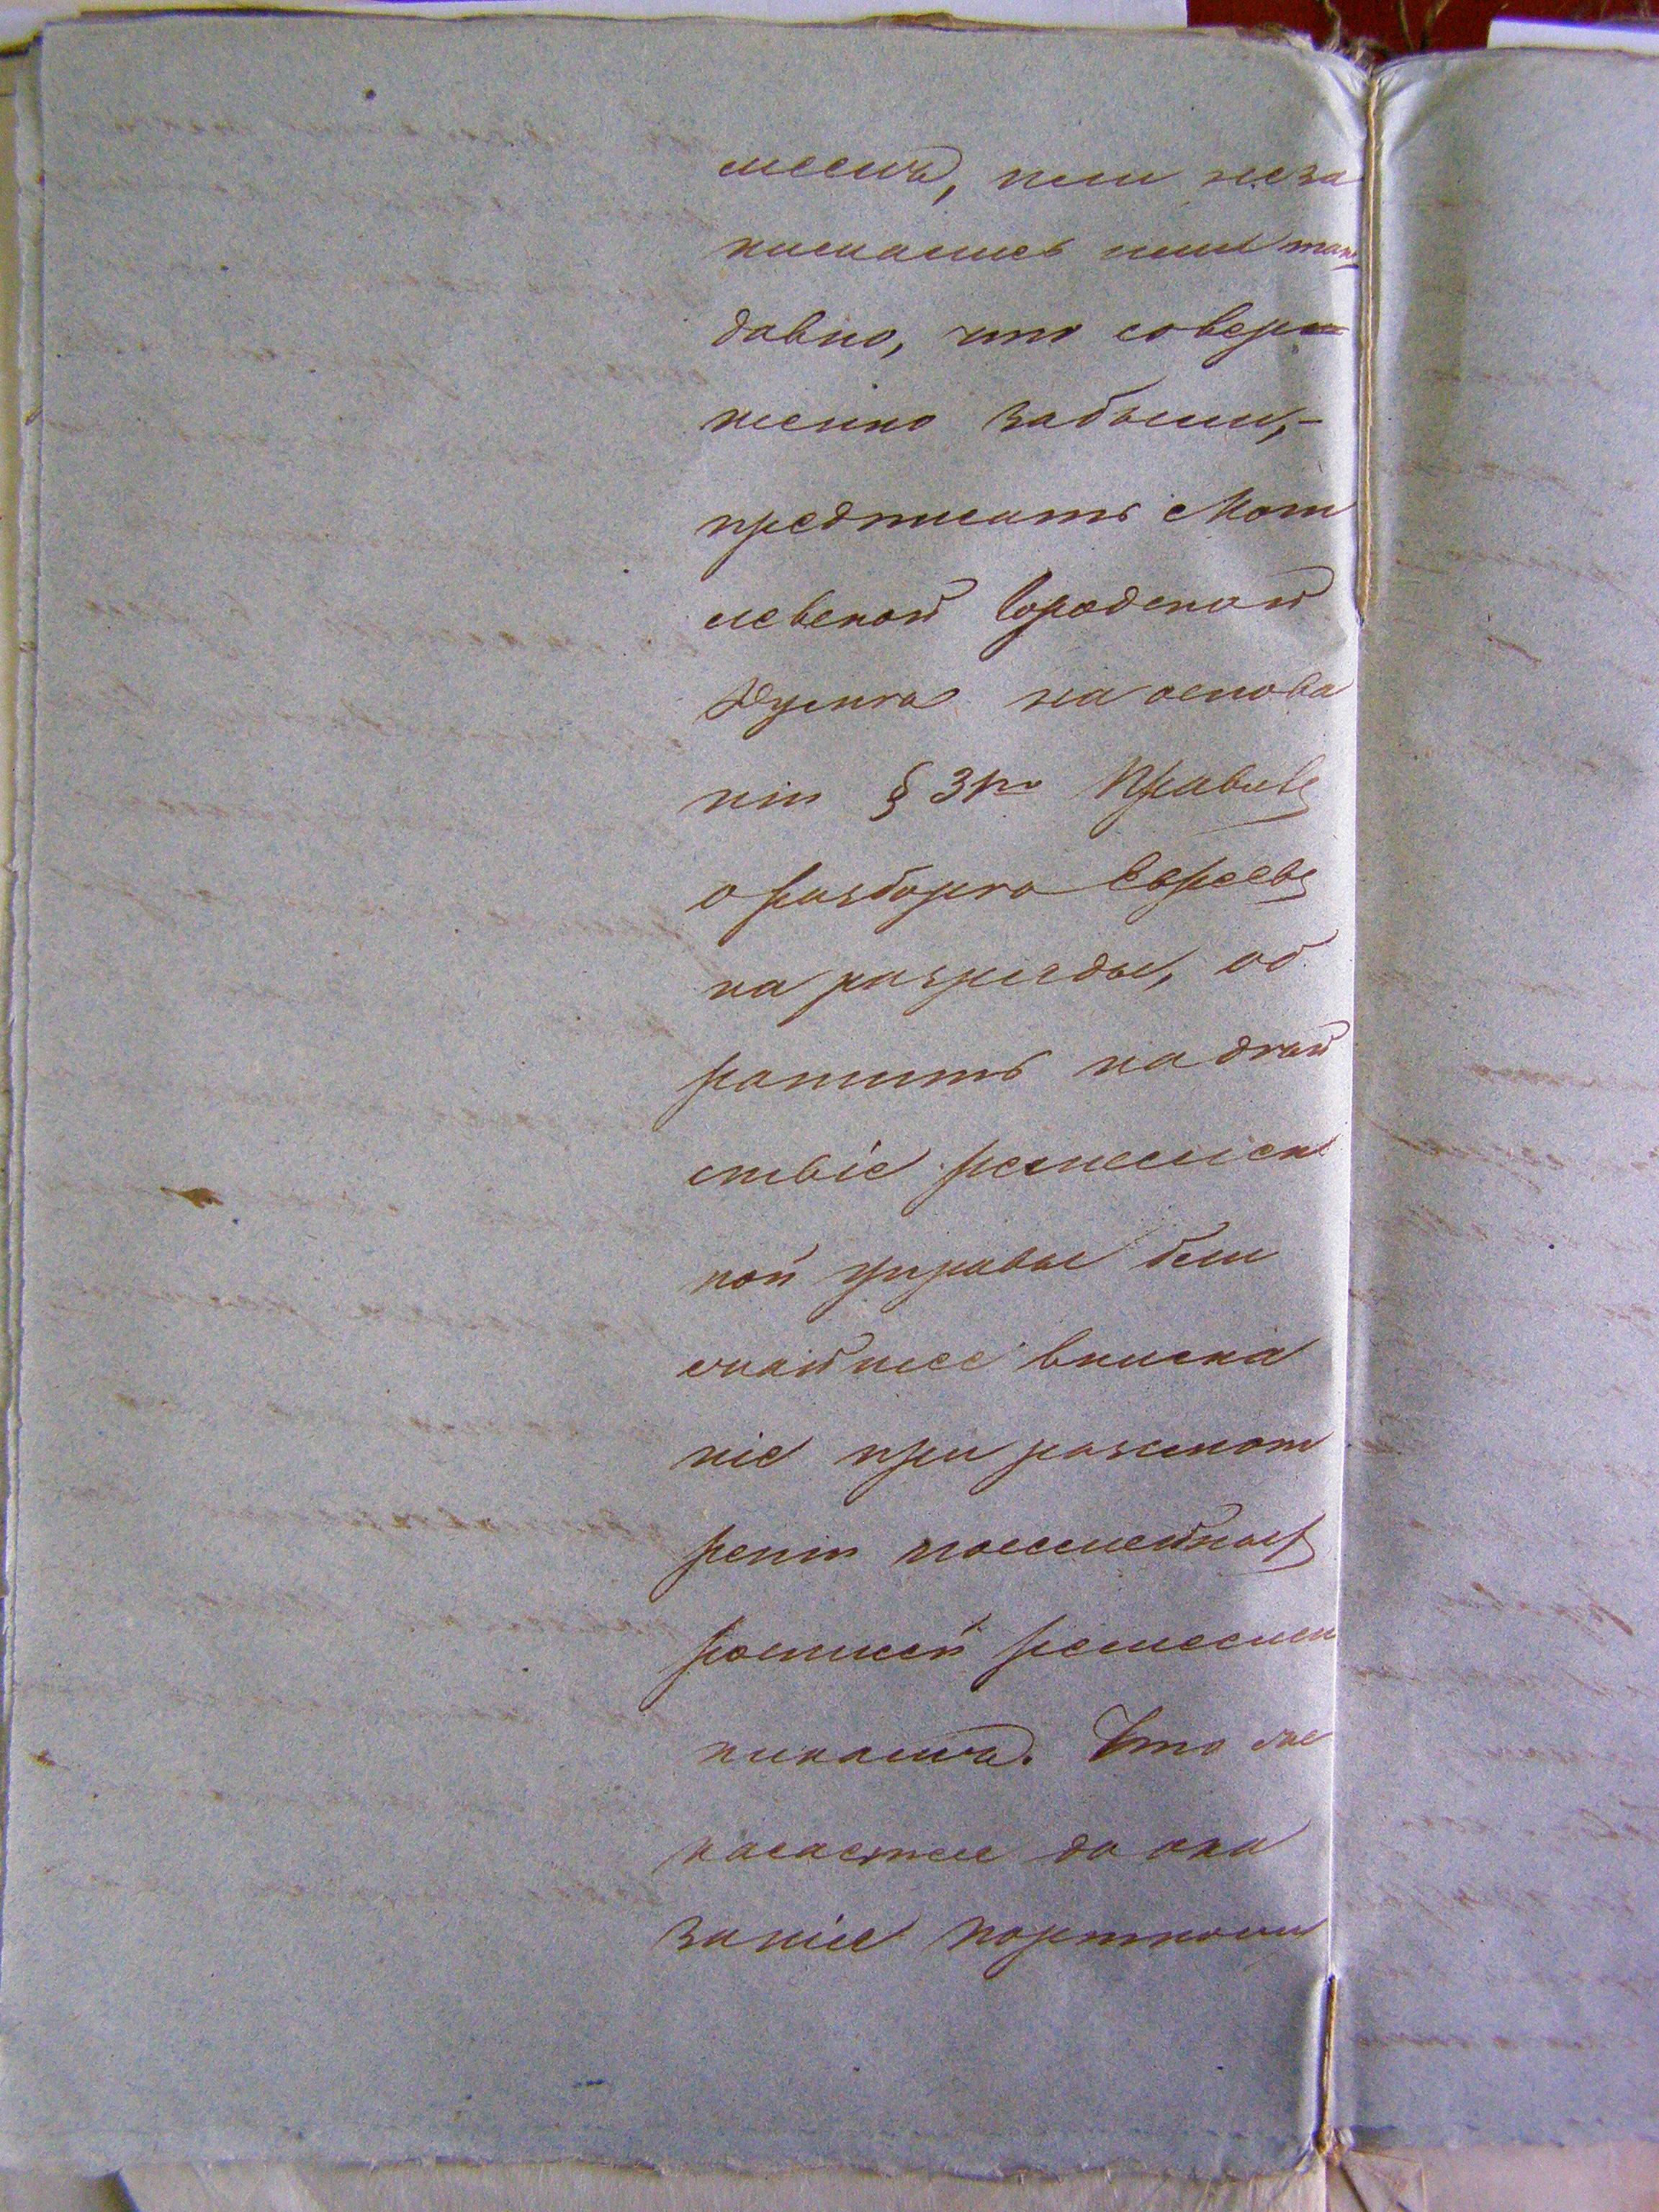 меслѣ, или неза
нимались ими такъ
давно, что совер
шенно забыли,-
предписать Моги
левской Городской
Думѣ на основа
ніи § 3го Правилъ
о разборѣ Евреевъ
на разряды, об
ратить на дѣй
ствіе ремеслен
ной управы бли
жайшее внима
ніе при разсмот
реніи посемейныхъ
росписей ремеслен
никамъ. Что же
касается до ока
занія портными